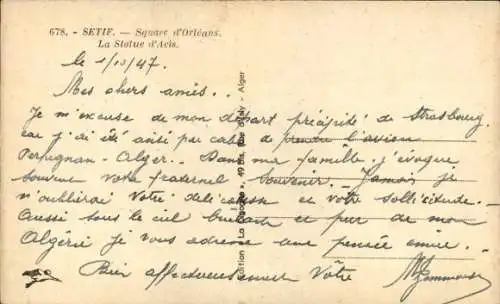 678. - SETIF. — Square d'Orléans.
La Statue d'Acis.
le 1/10/47.
Mes chers amis..
Je m'excuse de mon départ précipité de Strasbourg
car j'ai été avisé par cable de prendre l'avion
Perpignan - Alger.. Dans ma famille j'évoque
souvent votre fraternel souvenir. Jamais je
n'oublierai votre délicatesse et votre sollicitude.
Aussi sous le ciel brûlant et pur de mon
Algérie je vous adresse une pensée émue.
Bien affectueusement Vôtre
Alger